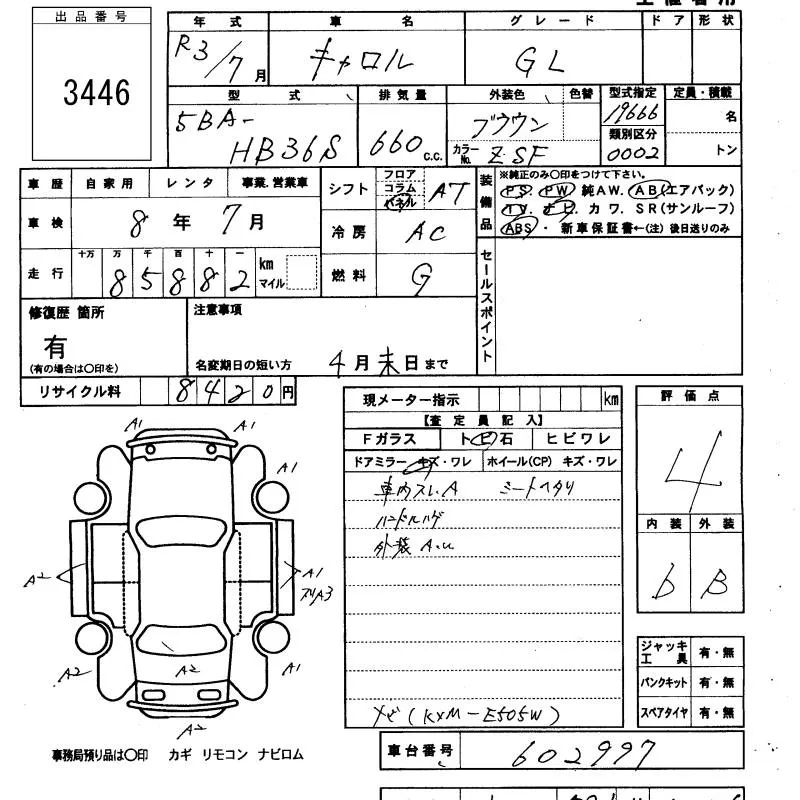 出品番号
3446
年式 車名 グレード ドア 形状
R3/7月 キャロル GL
型式 排気量 外装色 色替 型式指定 定員・積載
5BA-HB36S 660c.c. ブラウン 19666 名
カラーNo. ZSF 類別区分 0002 トン
車歴 自家用 レンタ 事業.営業車
車検 8年7月
走行 十万 万 千 百 十 一
85882 km マイル
シフト フロア コラム パネル AT
冷房 AC
燃料 G
装備品 ※純正のみ○印をつけて下さい。
PS. PW 純AW. AB(エアバック)
TV. ナビ. カワ. SR(サンルーフ)
ABS ・ 新車保証書←(注) 後日送りのみ
セールスポイント
修復歴 箇所
有
(有の場合は○印を)
注意事項
名変期日の短い方 4月末日まで
リサイクル料 8420円
現メーター指示 km
【査定員記入】
Fガラス トビ石 ヒビワレ
ドアミラー キズ・ワレ ホイール(CP) キズ・ワレ
車内スレ.A シートヘタリ
ハンドルハゲ
外装 A.U
ナビ(KXM-E505W)
評価点
4
内装 外装
b B
ジャッキ工具 有・無
パンクキット 有・無
スペアタイヤ 有・無
A1 A1
A1
A2 A1
A3
A2 A2 A1
A2
事務局預り品は○印 カギ リモコン ナビロム
車台番号 602997